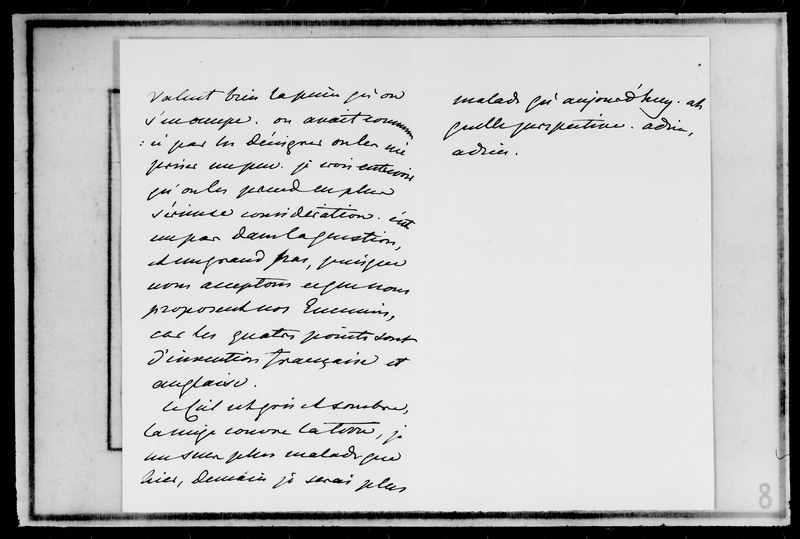 valent bien la peine qu'on
s'en occupe. on avait commen
cé par les dénigrer on les mé
priser un peu. je crois entrevoir
qu'on les prend en plus
sérieuse considération. c'est
un pas dans la question,
et un grand pas, puisque
nous acceptons ce que nous
proposent nos Ennemis,
car les quatre points sont
d'invention française et
anglaise.
le Ciel est gris et sombre,
la neige couvre la terre, je
me sens plus malade que
hier, demain je serai plus
malade qu'aujourd'huy. ah
quelle perspective. adieu,
adieu.
8